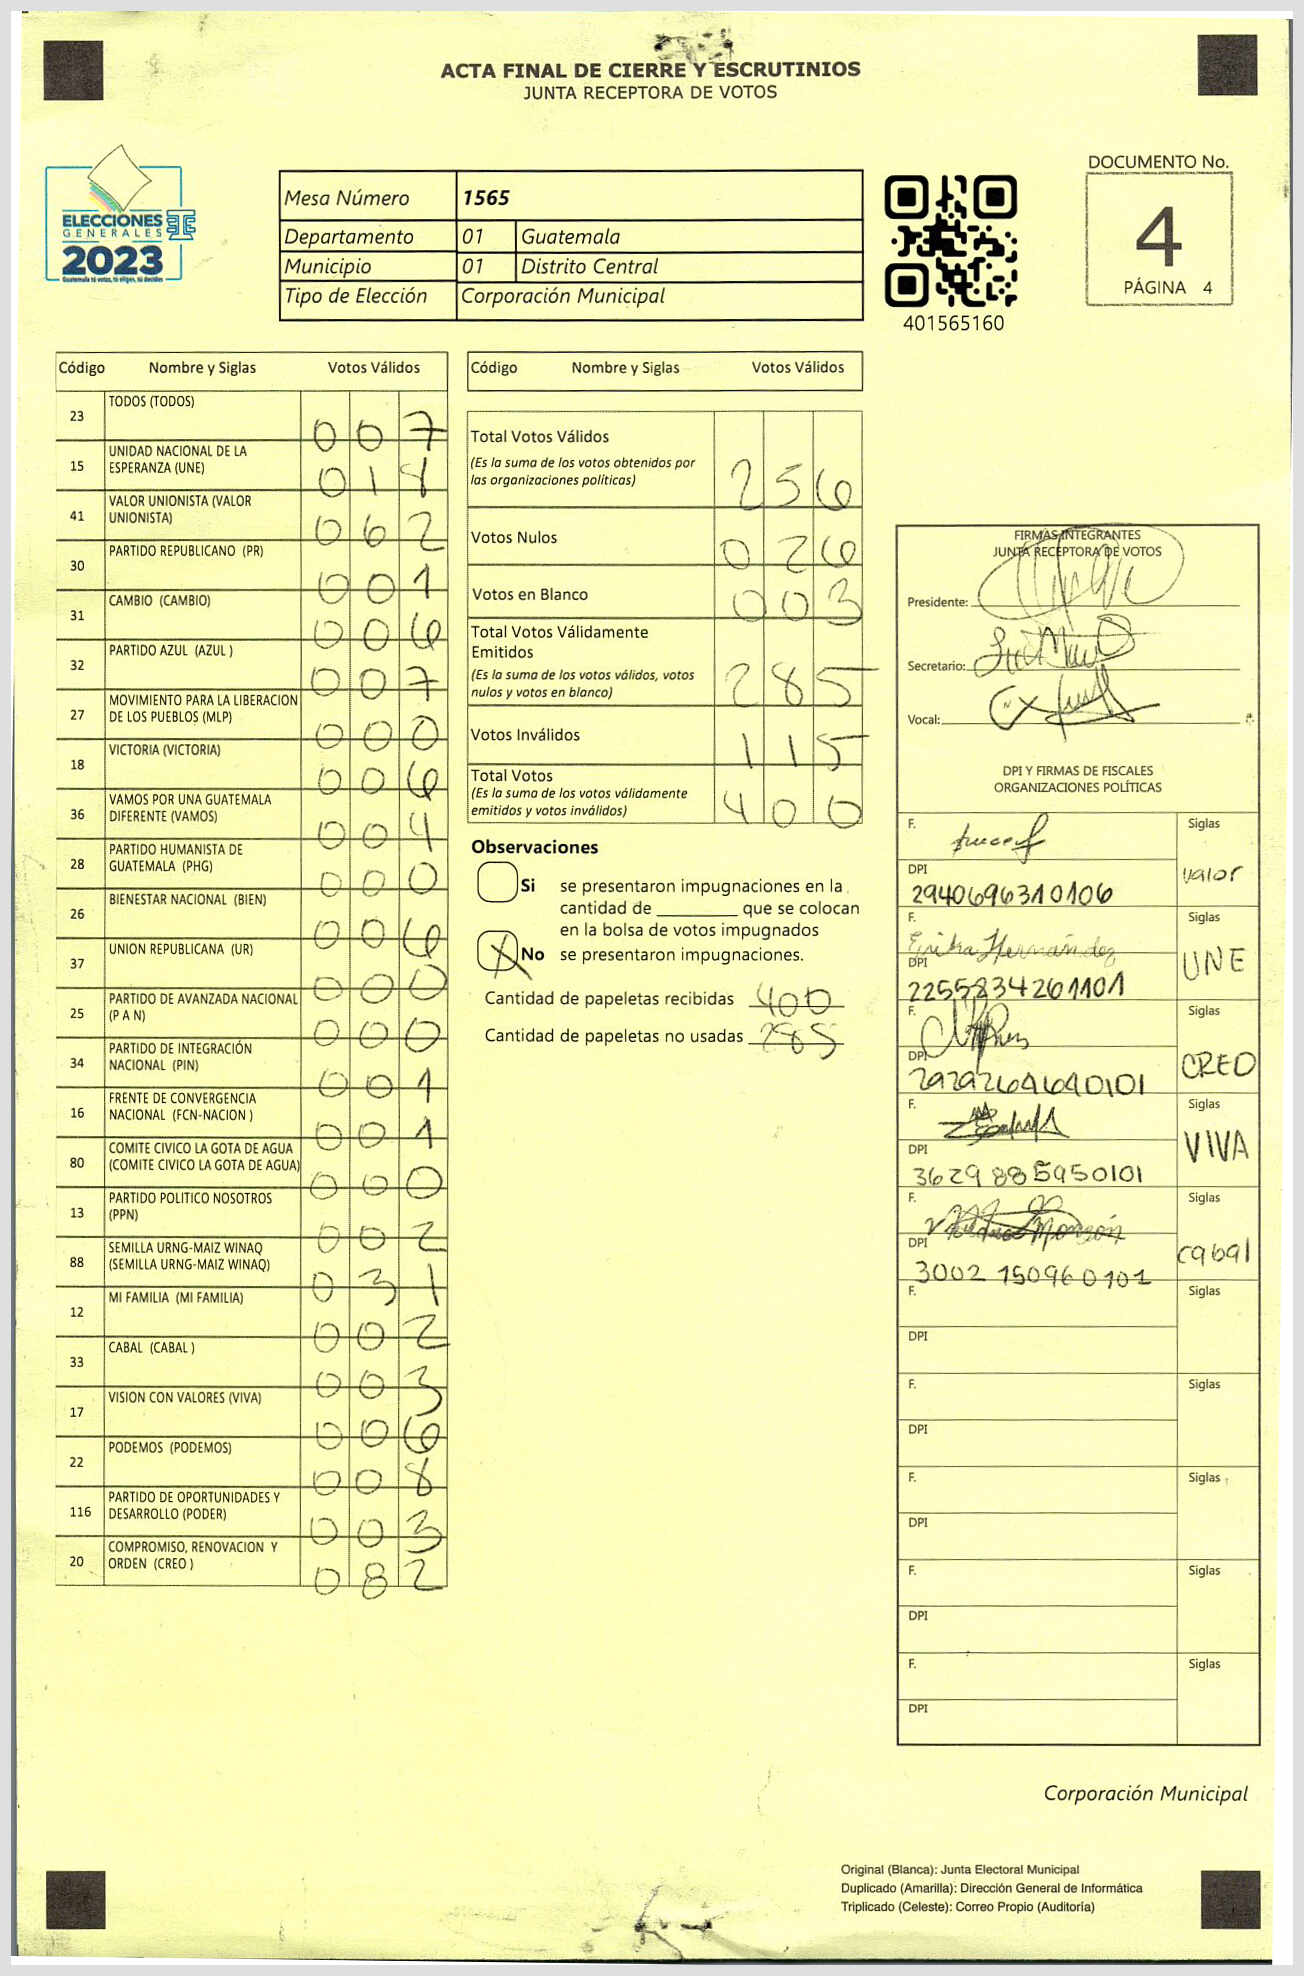 ACTA FINAL DE CIERRE Y ESCRUTINIOS
JUNTA RECEPTORA DE VOTOS
ELECCIONES
GENERALES
2023
Guatemala tú votas, tú eliges, tú decides
Mesa Número 1565
Departamento 01 Guatemala
Municipio 01 Distrito Central
Tipo de Elección Corporación Municipal
401565160
DOCUMENTO No.
4
PÁGINA 4
Código Nombre y Siglas Votos Válidos
23 TODOS (TODOS) 0 0 7
15 UNIDAD NACIONAL DE LA
ESPERANZA (UNE) 0 1 8
41 VALOR UNIONISTA (VALOR
UNIONISTA) 0 6 2
30 PARTIDO REPUBLICANO (PR) 0 0 1
31 CAMBIO (CAMBIO) 0 0 6
32 PARTIDO AZUL (AZUL ) 0 0 7
27 MOVIMIENTO PARA LA LIBERACION
DE LOS PUEBLOS (MLP) 0 0 0
18 VICTORIA (VICTORIA) 0 0 6
36 VAMOS POR UNA GUATEMALA
DIFERENTE (VAMOS) 0 0 4
28 PARTIDO HUMANISTA DE
GUATEMALA (PHG) 0 0 0
26 BIENESTAR NACIONAL (BIEN) 0 0 6
37 UNION REPUBLICANA (UR) 0 0 0
25 PARTIDO DE AVANZADA NACIONAL
(P A N) 0 0 0
34 PARTIDO DE INTEGRACIÓN
NACIONAL (PIN) 0 0 1
16 FRENTE DE CONVERGENCIA
NACIONAL (FCN-NACION ) 0 0 1
80 COMITE CIVICO LA GOTA DE AGUA
(COMITE CIVICO LA GOTA DE AGUA) 0 0 0
13 PARTIDO POLITICO NOSOTROS
(PPN) 0 0 2
88 SEMILLA URNG-MAIZ WINAQ
(SEMILLA URNG-MAIZ WINAQ) 0 3 1
12 MI FAMILIA (MI FAMILIA) 0 0 2
33 CABAL (CABAL ) 0 0 3
17 VISION CON VALORES (VIVA) 0 0 6
22 PODEMOS (PODEMOS) 0 0 8
116 PARTIDO DE OPORTUNIDADES Y
DESARROLLO (PODER) 0 0 3
20 COMPROMISO, RENOVACION Y
ORDEN (CREO ) 0 8 2
Código Nombre y Siglas Votos Válidos
Total Votos Válidos
(Es la suma de los votos obtenidos por
las organizaciones políticas) 2 5 6
Votos Nulos 0 2 6
Votos en Blanco 0 0 3
Total Votos Válidamente
Emitidos
(Es la suma de los votos válidos, votos
nulos y votos en blanco) 2 8 5
Votos Inválidos 1 1 5
Total Votos
(Es la suma de los votos válidamente
emitidos y votos inválidos) 4 0 0
Observaciones
Si se presentaron impugnaciones en la
cantidad de ________ que se colocan
en la bolsa de votos impugnados
X No se presentaron impugnaciones.
Cantidad de papeletas recibidas 400
Cantidad de papeletas no usadas 285
FIRMAS INTEGRANTES
JUNTA RECEPTORA DE VOTOS
Presidente:
Secretario:
Vocal:
DPI Y FIRMAS DE FISCALES
ORGANIZACIONES POLÍTICAS
F. Siglas
DPI valor
2940696310106
F. Erika Hernández Siglas
DPI UNE
2255834261101
F. Siglas
DPI CREO
2929264640101
F. Siglas
DPI VIVA
3629 885950101
F. Monzón Siglas
DPI cabal
3002 150960101
F. Siglas
DPI
F. Siglas
DPI
F. Siglas
DPI
F. Siglas
DPI
F. Siglas
DPI
Corporación Municipal
Original (Blanca): Junta Electoral Municipal
Duplicado (Amarilla): Dirección General de Informática
Triplicado (Celeste): Correo Propio (Auditoría)